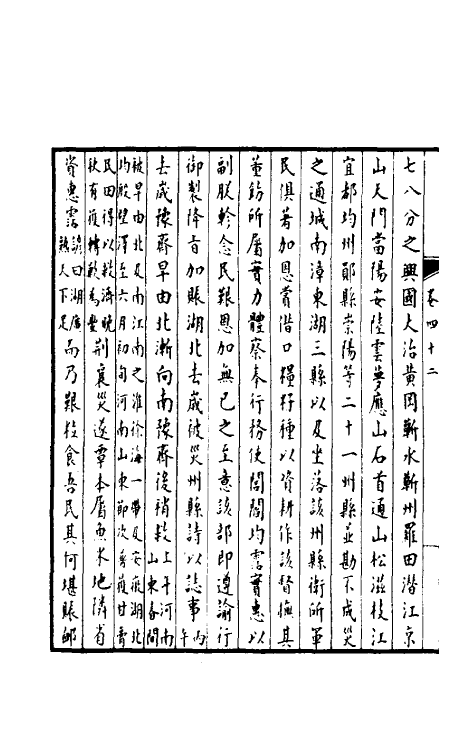 卷四十二
七八分之興國大冶黃岡蘄水蘄州羅田潛江京
山天門當陽安陸雲夢應山石首通山松滋枝江
宜都均州鄖縣崇陽等二十一州縣並勘不成災
之通城南漳東湖三縣以及坐落該州縣衛所軍
民俱著加恩賞借口糧籽種以資耕作該督撫其
董飭所屬實力體察奉行務使閭閻均霑實惠以
副朕軫念民艱恩加無已之至意該部即遵諭行
御製降旨加賑湖北去歲被災州縣詩以誌事丙午
去歲豫齊旱由北漸向南豫齊後稍救上年河南山東春間
被旱由北及南江南之淮徐海一帶及安徽湖北均報望澤至六月初旬河南山東節次獲甘
民田得以救濟晚秋有獲轉歉為豐荆襄災遂覃本屬魚米地隣省
資惠霑諺曰湖廣熟天下足而乃艱粒食吾民其何堪賑卹